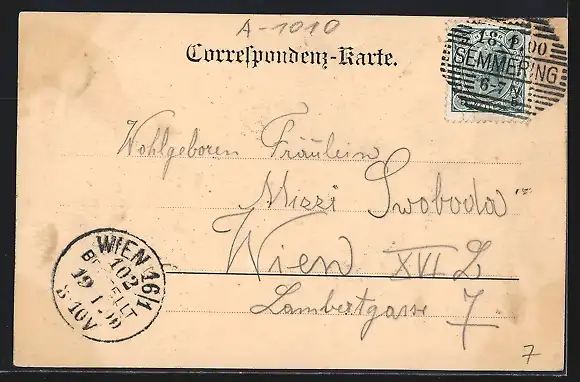 A-1010
Correspondenz-Karte.
18 1 00
SEMMERING
6-7 N
Wohlgeboren Fräulein
Mizzi Swoboda
Wien XVI
Lambertgasse 7
WIEN 16/1
102
BESTELLT
19 1 00
8-10V
7